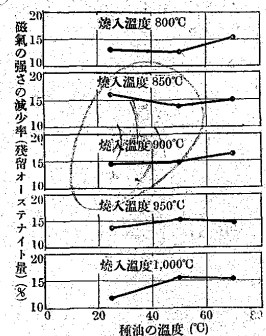 磁氣の强さの減少率(殘留オーステナイト量)(%)
20
燒入溫度 800℃
15
10
燒入溫度 850℃
15
10
燒入溫度 900℃
15
10
燒入溫度 950℃
15
10
燒入溫度 1,000℃
15
10
0 20 40 60 80
種油の溫度 (℃)